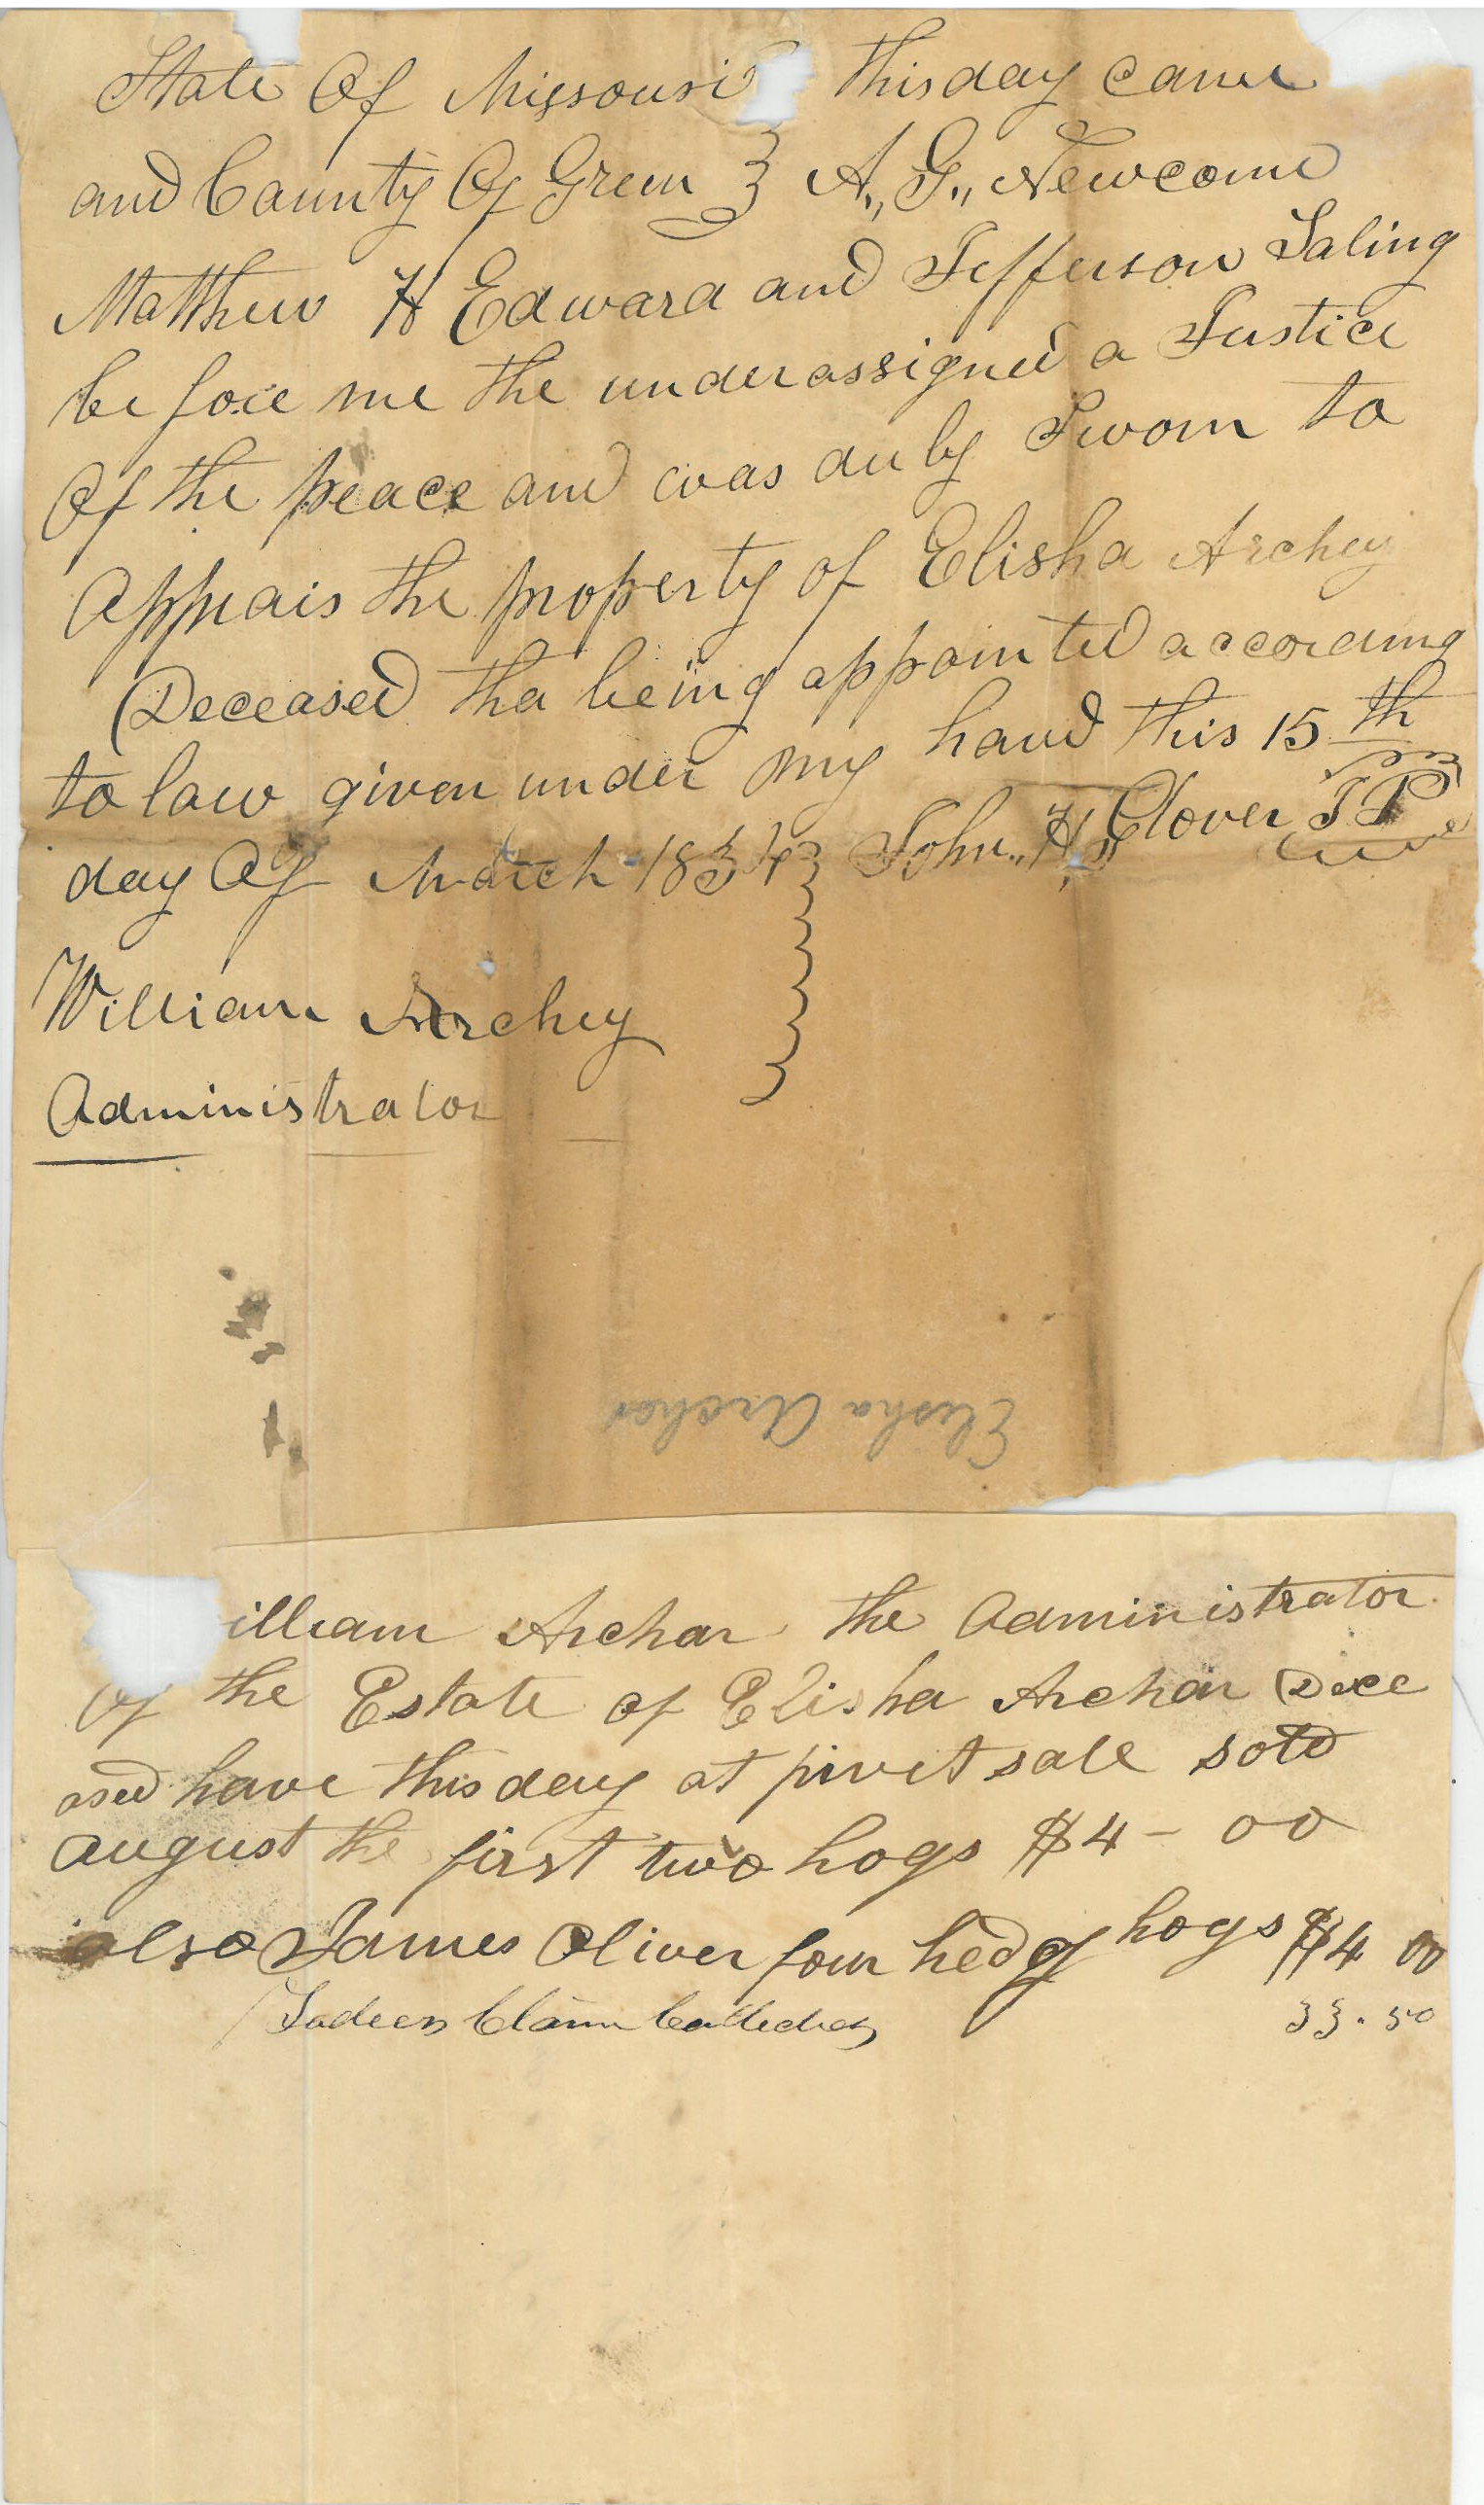 State Of Missouri this day came
and County Of Green A,, G,, Newcome
Matthew H Edward and Jefferson Saling
before me the underassigned a Justice
Of the peace and was duly Sworn to
Apprais the property of Elisha Archey
Deceased tha being appointed according
to law given under my hand this 15 th
day Of March 1834 John,, H,, Clover J P
William Archey
Administrator
Elisha Archer
illiam Archar the Administrator
of the Estate of Elisha Archar Dece
ased have this day at privet sale sold
august the first two hogs $4 - 00
also James Oliver four hed of hogs $4 00
Claim Collected 33.50